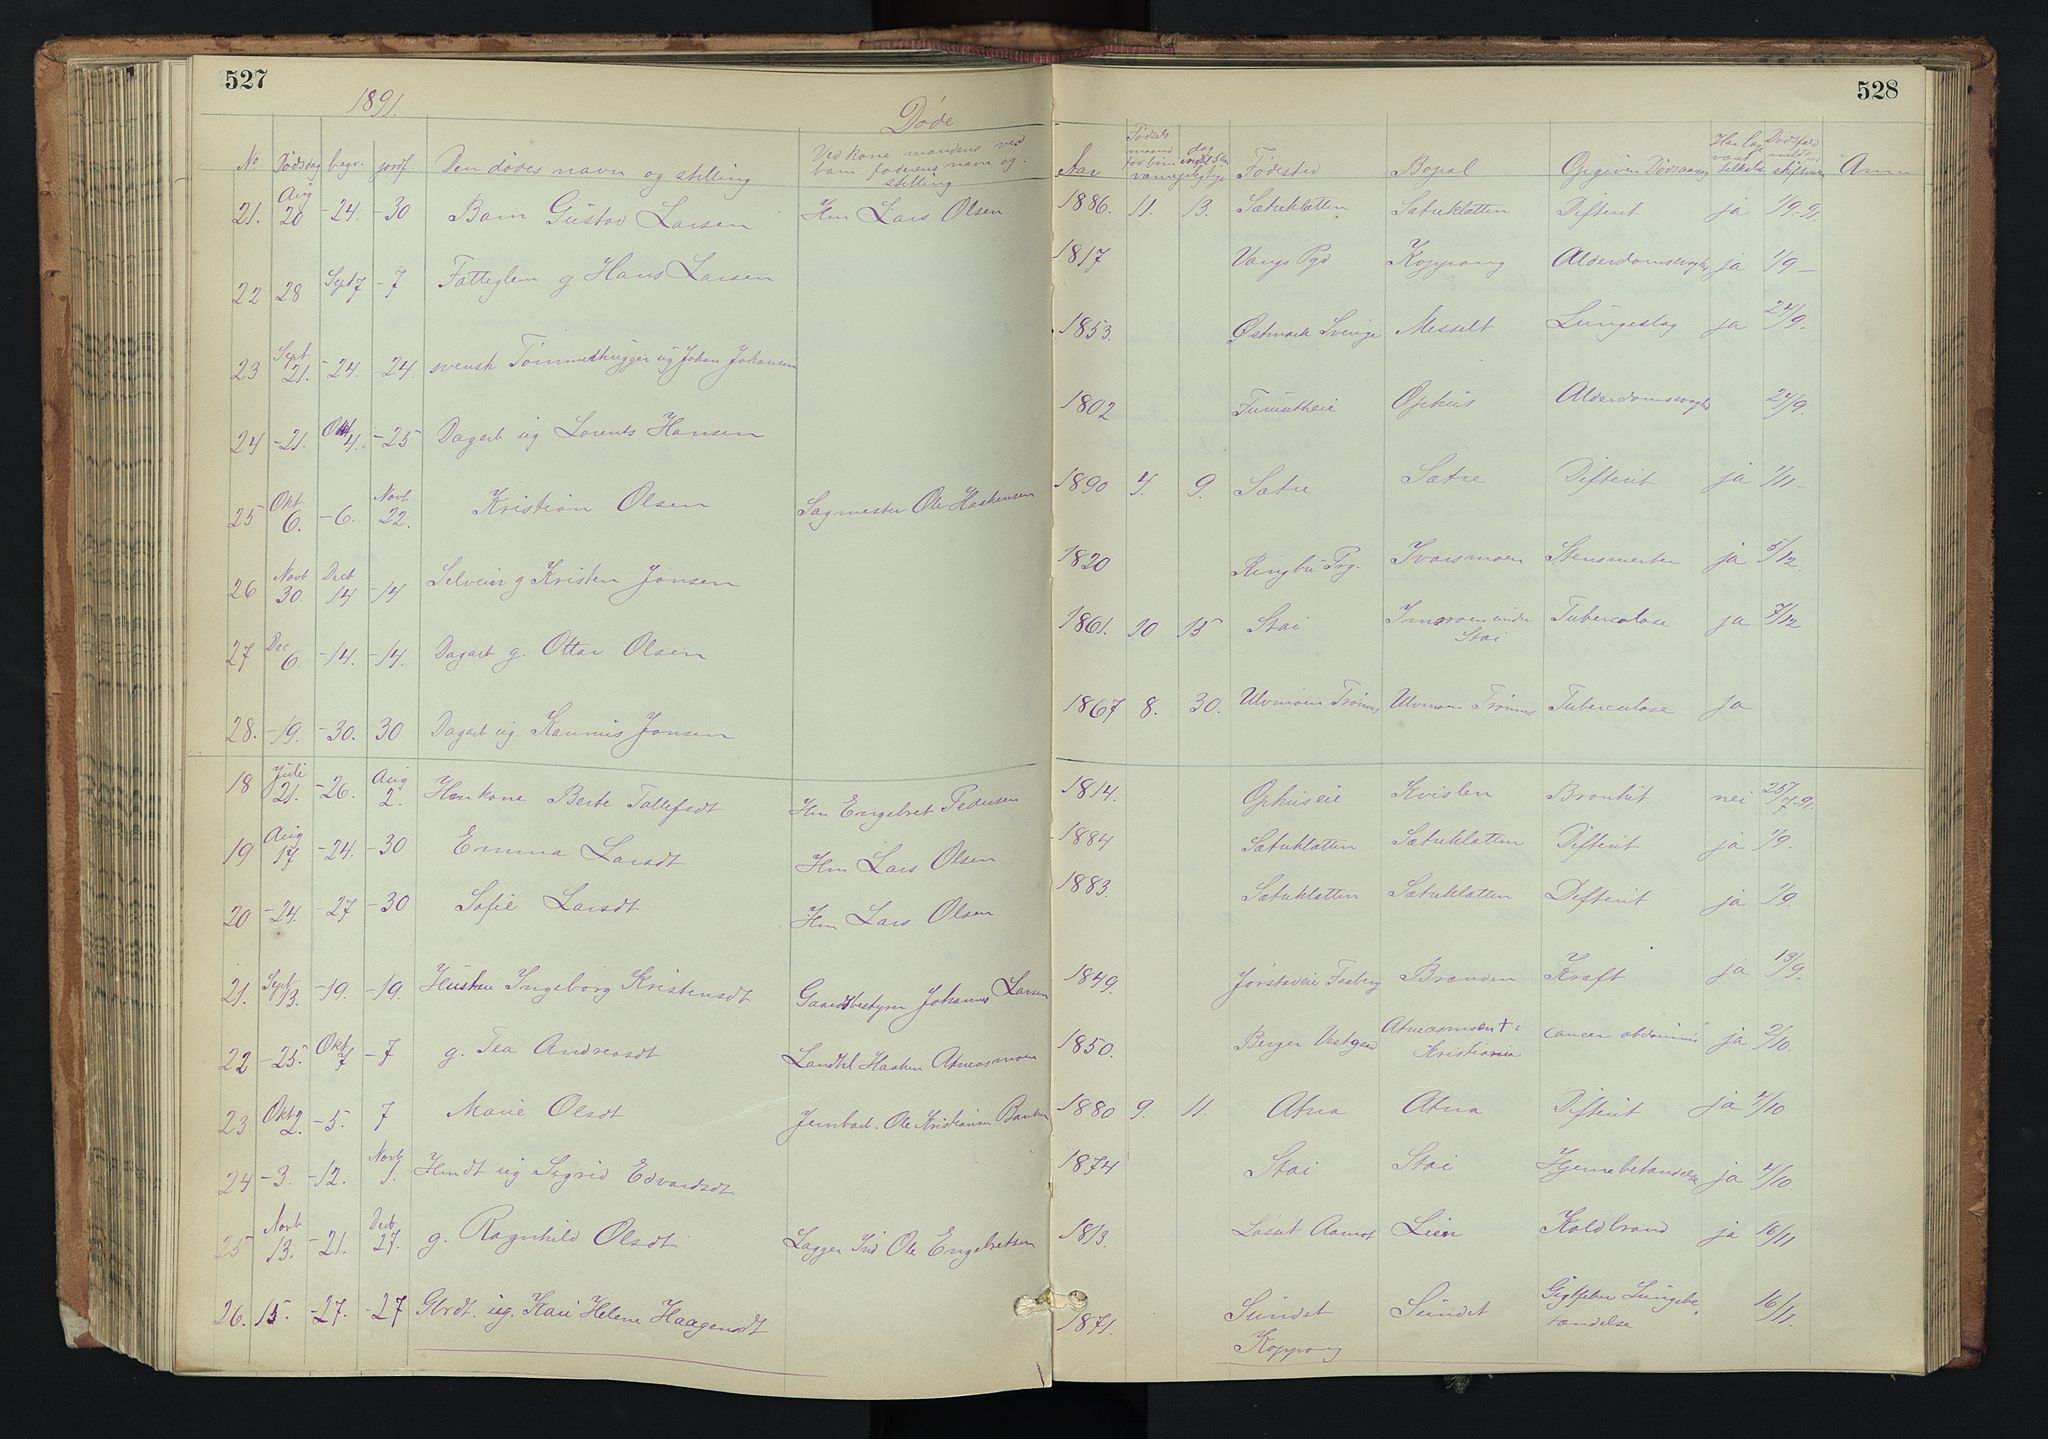 527
1891.
Døde
No Dødsdag begr. jordf. Den dødes navn og stilling Ved kone mandens ved barn faderens navn og stilling
21. Aug 20 -24. -30 Barn Gustav Larsen Hm Lars Olsen
22 28 Sept 7 -7 Fattiglem g Hans Larsen
23 Sept 21. -24. -24. svensk Tømmerhugger ug Johan Johansen
24 -21. Okt 4. -25 Dagarb ug Lorents Hansen
25 Okt 6. -6. Novb 22. Kristian Olsen Sagmester Ole Haakensen
26 Novb 30. Decb 14 -14 Selveier g Kristen Jonsen
27 Dec 6. -14. -14. Dagarb g. Ottar Olsen
28. -19. -30. 30 Dagarb ug. Rasmus Jonsen
18 Juli 21. -26. Aug 2. Hmkone Berte Tollefsdt Hm Engebret Pedersen
19 Aug 17 -24. -30 Emma Larsdt Hm Lars Olsen
20 -24. -27 -30 Sofie Larsdt Hm Lars Olsen
21. Sept 13. -19. -19. Hustru Ingeborg Kristensdt Gaardsbestyrer Johannes Larsen
22 -25. Okt 7 -7 g. Tea Andreasdt Landhl Haaken Atneosmoen
23 Okt 2. -5. 7 Marie Olsdt Jernbarb. Ole Kristiansen
24 -3. -12. Novb 1. Hmdt ug Sigrid Edvardsdt
25 Novb 13. -21. Decb 27. g. Ragnhild Olsdt Lægger Ind Ole Engebretsen
26. 15. -27. -27 Gbrdt. ug. Kari Helene Haagensdt
528
Aar Fødsels maaned for børn dag Fødested Bopæl Opgiven Dødsaarsag Har læge været tilkaldt Dødsfald meldt skifteret Anm
1886. 11. 13. Sætreklætten Sætreklætten Difterit ja 1/9-91.
1817 Vangs Pgd Koppang Alderdomssvaghed ja 1/9 -
1853. Østmark Sverige Messelt Lungeslag ja 24/9-
1802 Ophus Alderdomssvaghed 24/9.
1890 4. 9. Sætre Sætre Difterit ja 1/11 -
1820 Ringebu Prg. Ivarsmoen Stensmerter ja 5/12.
1861. 10 15 Stai Imoen under Stai Tuberculose ja 7/12
1867 8. 30. Ulvmoen Trønnes Ulvmoen Trønnes Tuberculose ja
1814. Ophuseie Kvislen Bronkit nei 25/7-91.
1884 Sætreklætten Sætreklætten Difterit ja 1/9.
1883. Sætreklætten Sætreklætten Difterit ja 1/9.
1849. Jørstadeie Faaberg Brænden Kræft ja 13/9.
1850. Berger Vestgaard Atneosmoen + i Kristiania cancer abdominis ja 2/10.
1880 9. 11. Atna Atna Difterit ja 4/10
1874 Stai Stai Hjernebetændelse ja 4/10
1813. Løsset Aamot Lien Koldbrand ja 16/11
1871. Sundet Koppang Sundet Gigtfeber Lungebetændelse 16/11.